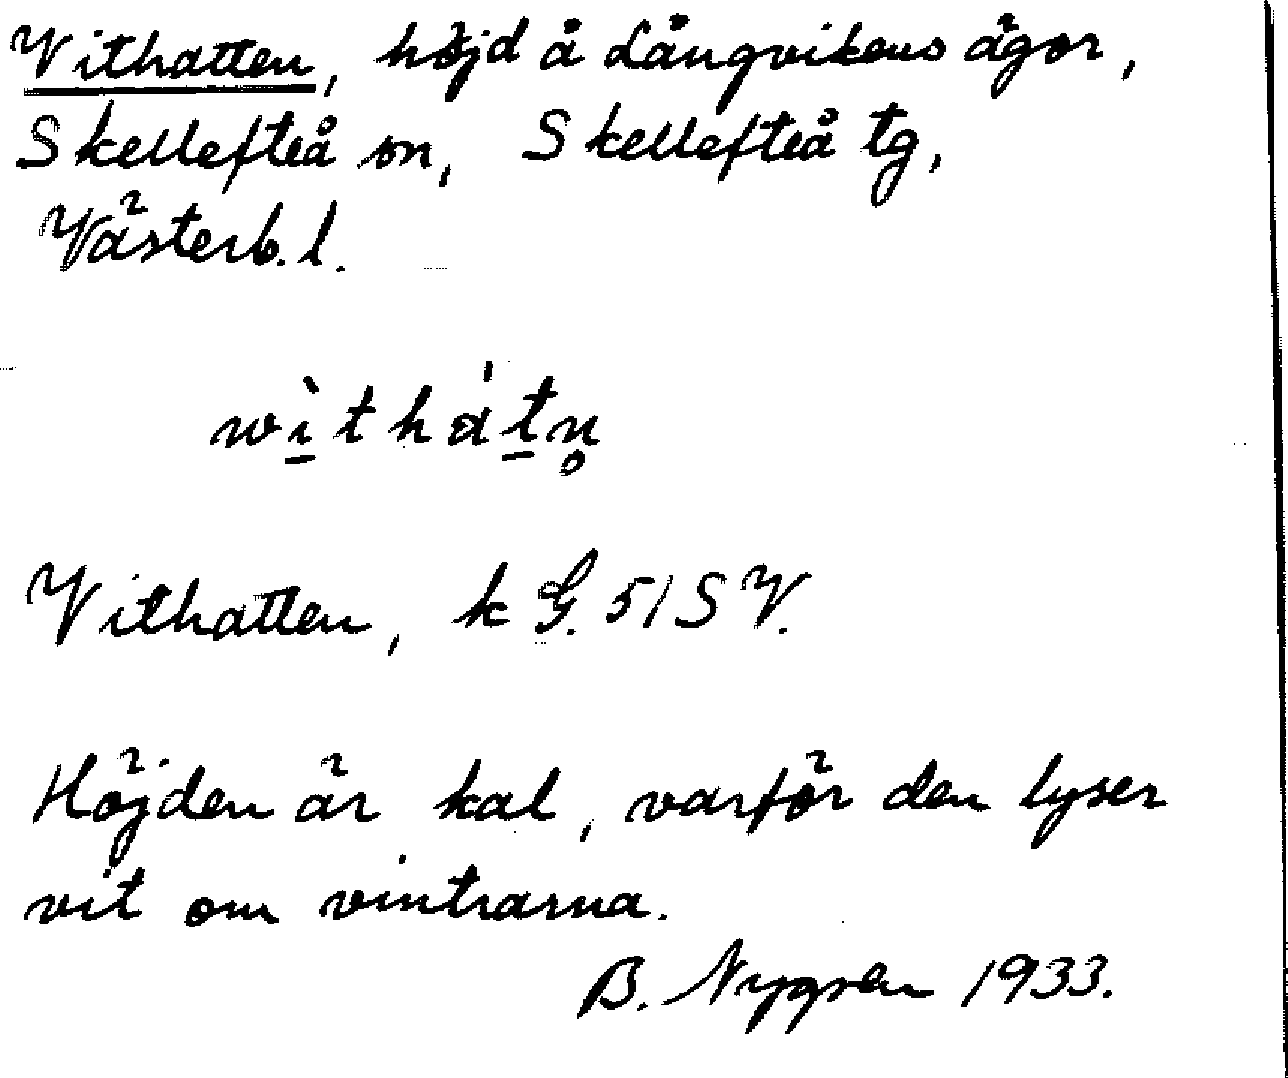 Vithatten, höjd å Långvikens ägor,
Skellefteå sn, Skellefteå tg,
Västerb. l.
wì̱thá̍ṯn̥
Vithatten, k G. 51 SV.
Höjden är kal, varför den lyser
vit om vintrarna.
B. Nygren 1933.